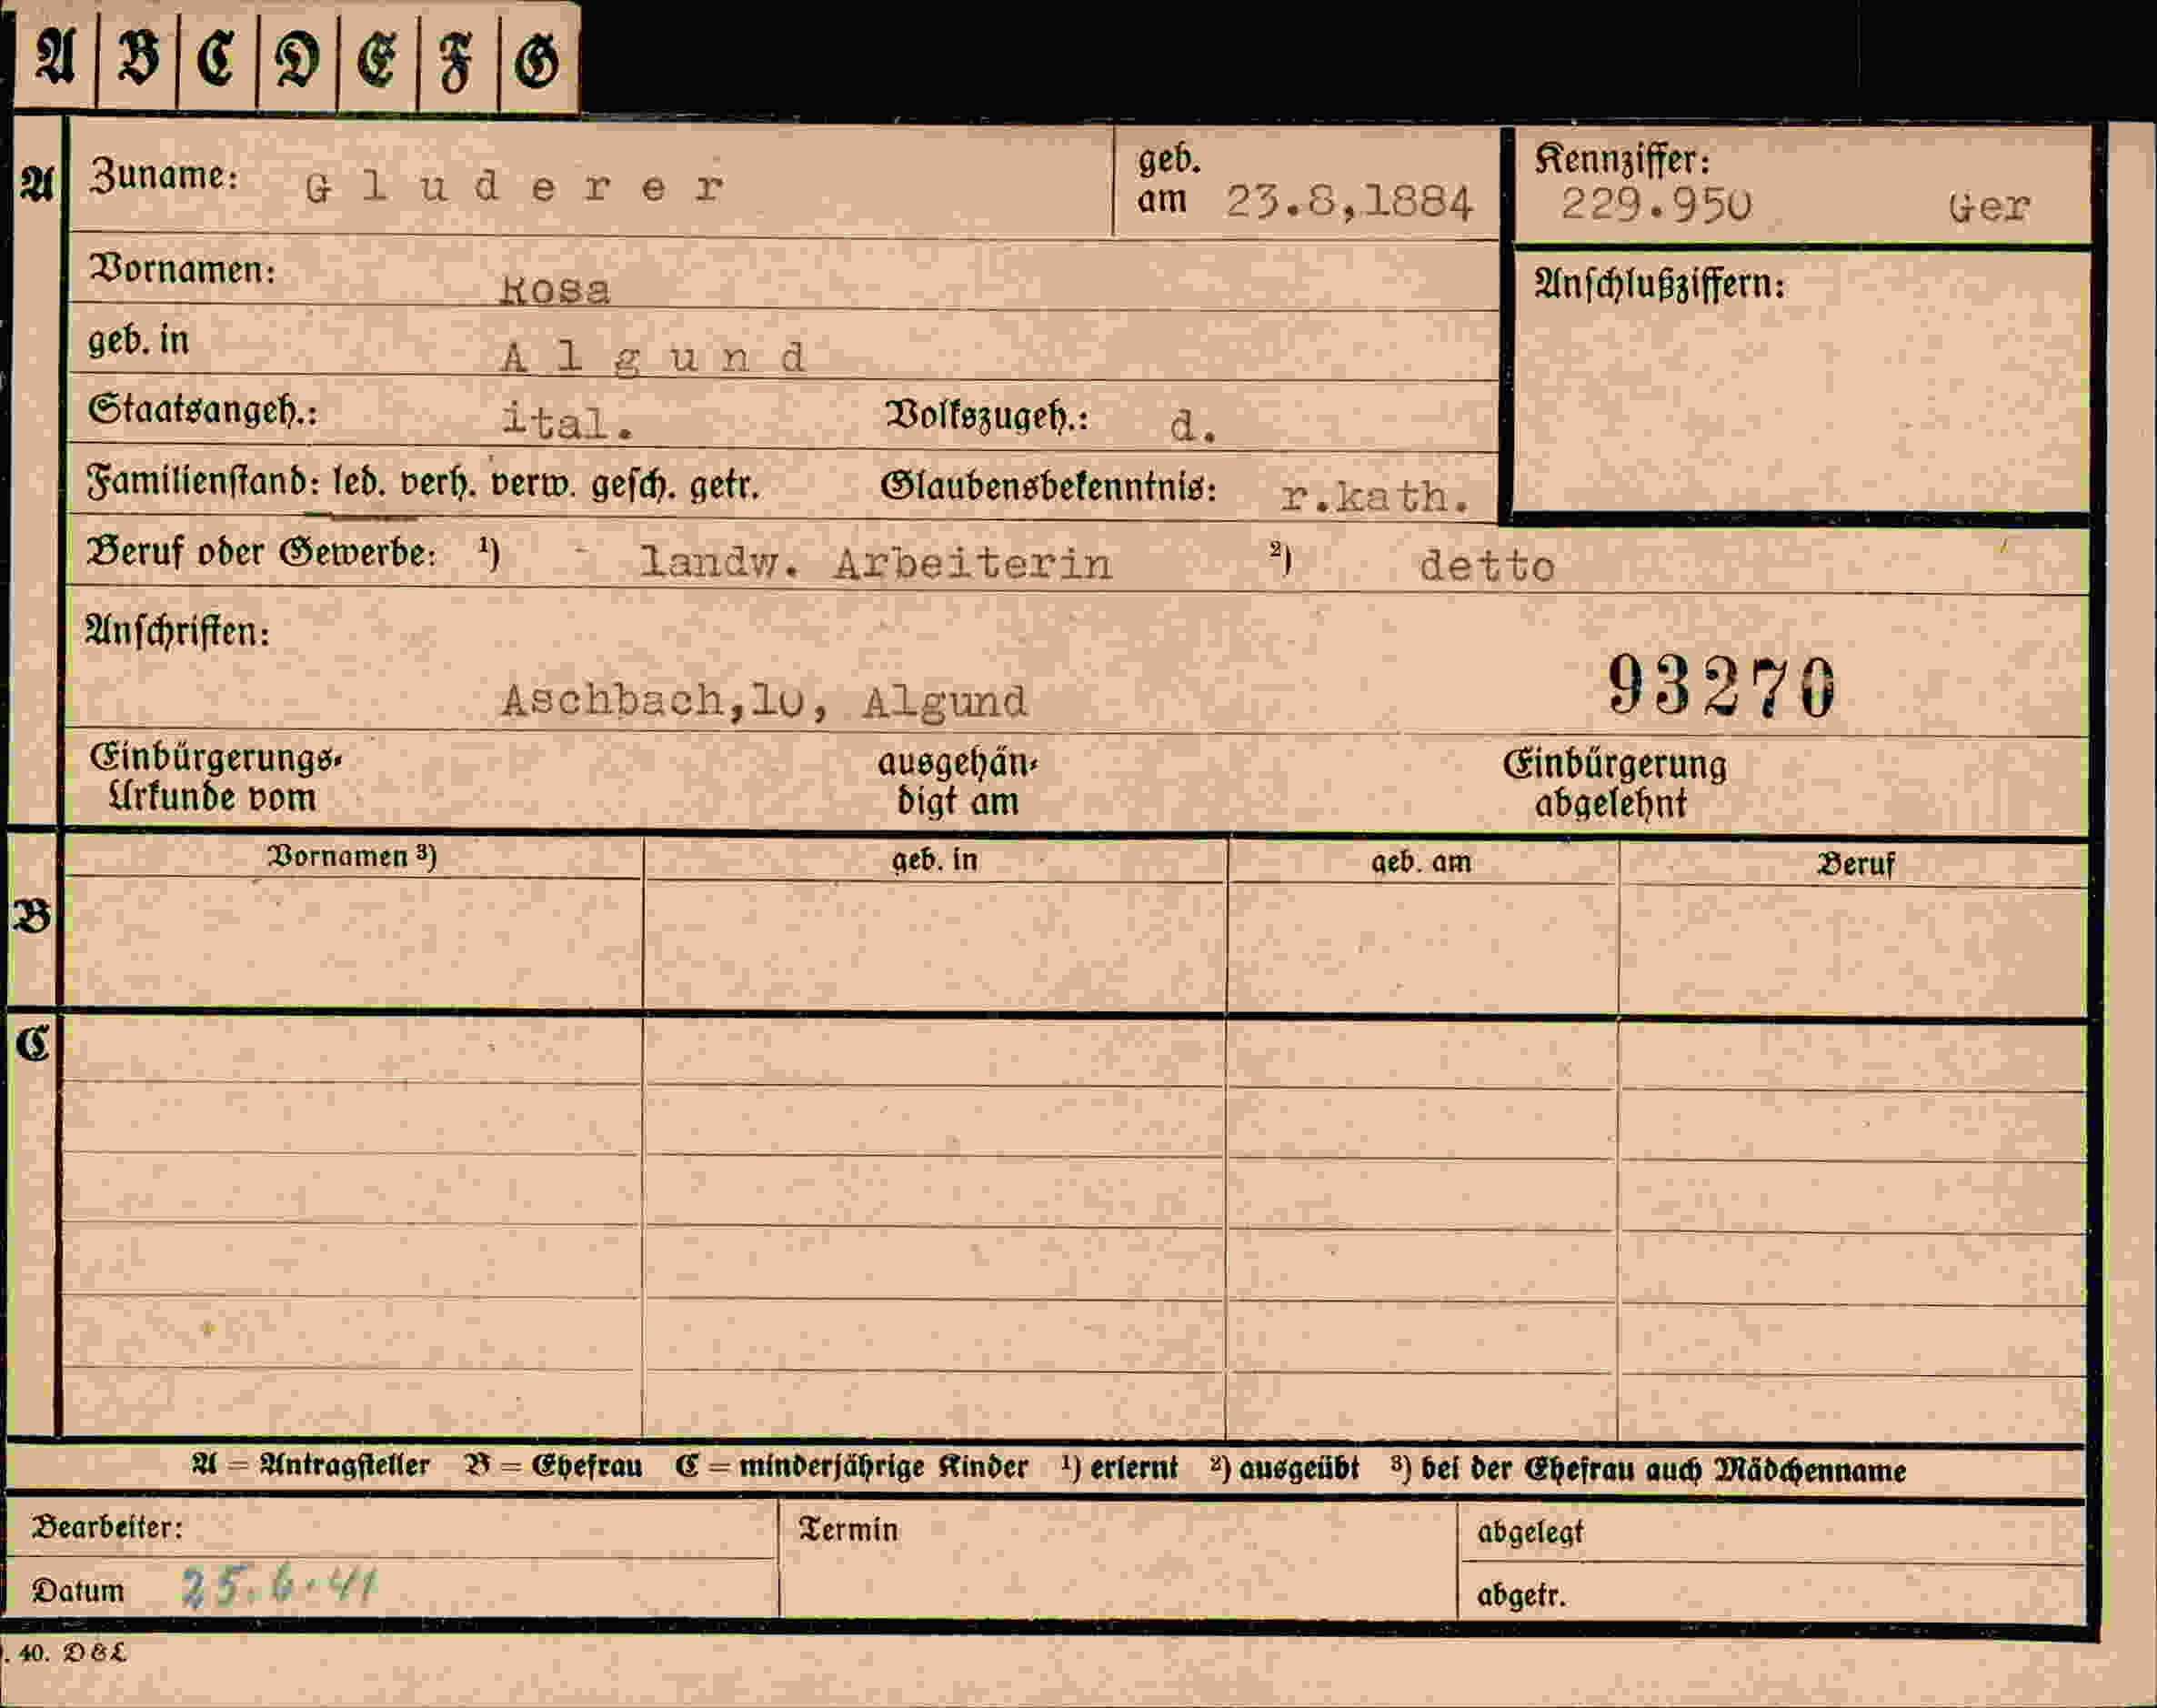 A B C D E F G
A Zuname: Gluderer geb. am 23.8,1884 Kennziffer: 229.950 Ger
Vornamen: Rosa Anschlußziffern:
geb. in Algund
Staatsangeh.: ital. Volkszugeh.: d.
Familienstand: led. verh. verw. gesch. getr. Glaubensbekenntnis: r.kath.
Beruf oder Gewerbe: ¹) - landw. Arbeiterin ²) detto
Anschriften:
93270
Aschbach,10, Algund
Einbürgerungs-Urkunde vom ausgehändigt am Einbürgerung abgelehnt
Vornamen ³) geb. in geb. am Beruf
B
C
A = Antragsteller B = Ehefrau C = minderjährige Kinder ¹) erlernt ²) ausgeübt ³) bei der Ehefrau auch Mädchenname
Bearbeiter: Termin abgelegt
Datum 25.6.41 abgetr.
. 40. D&L